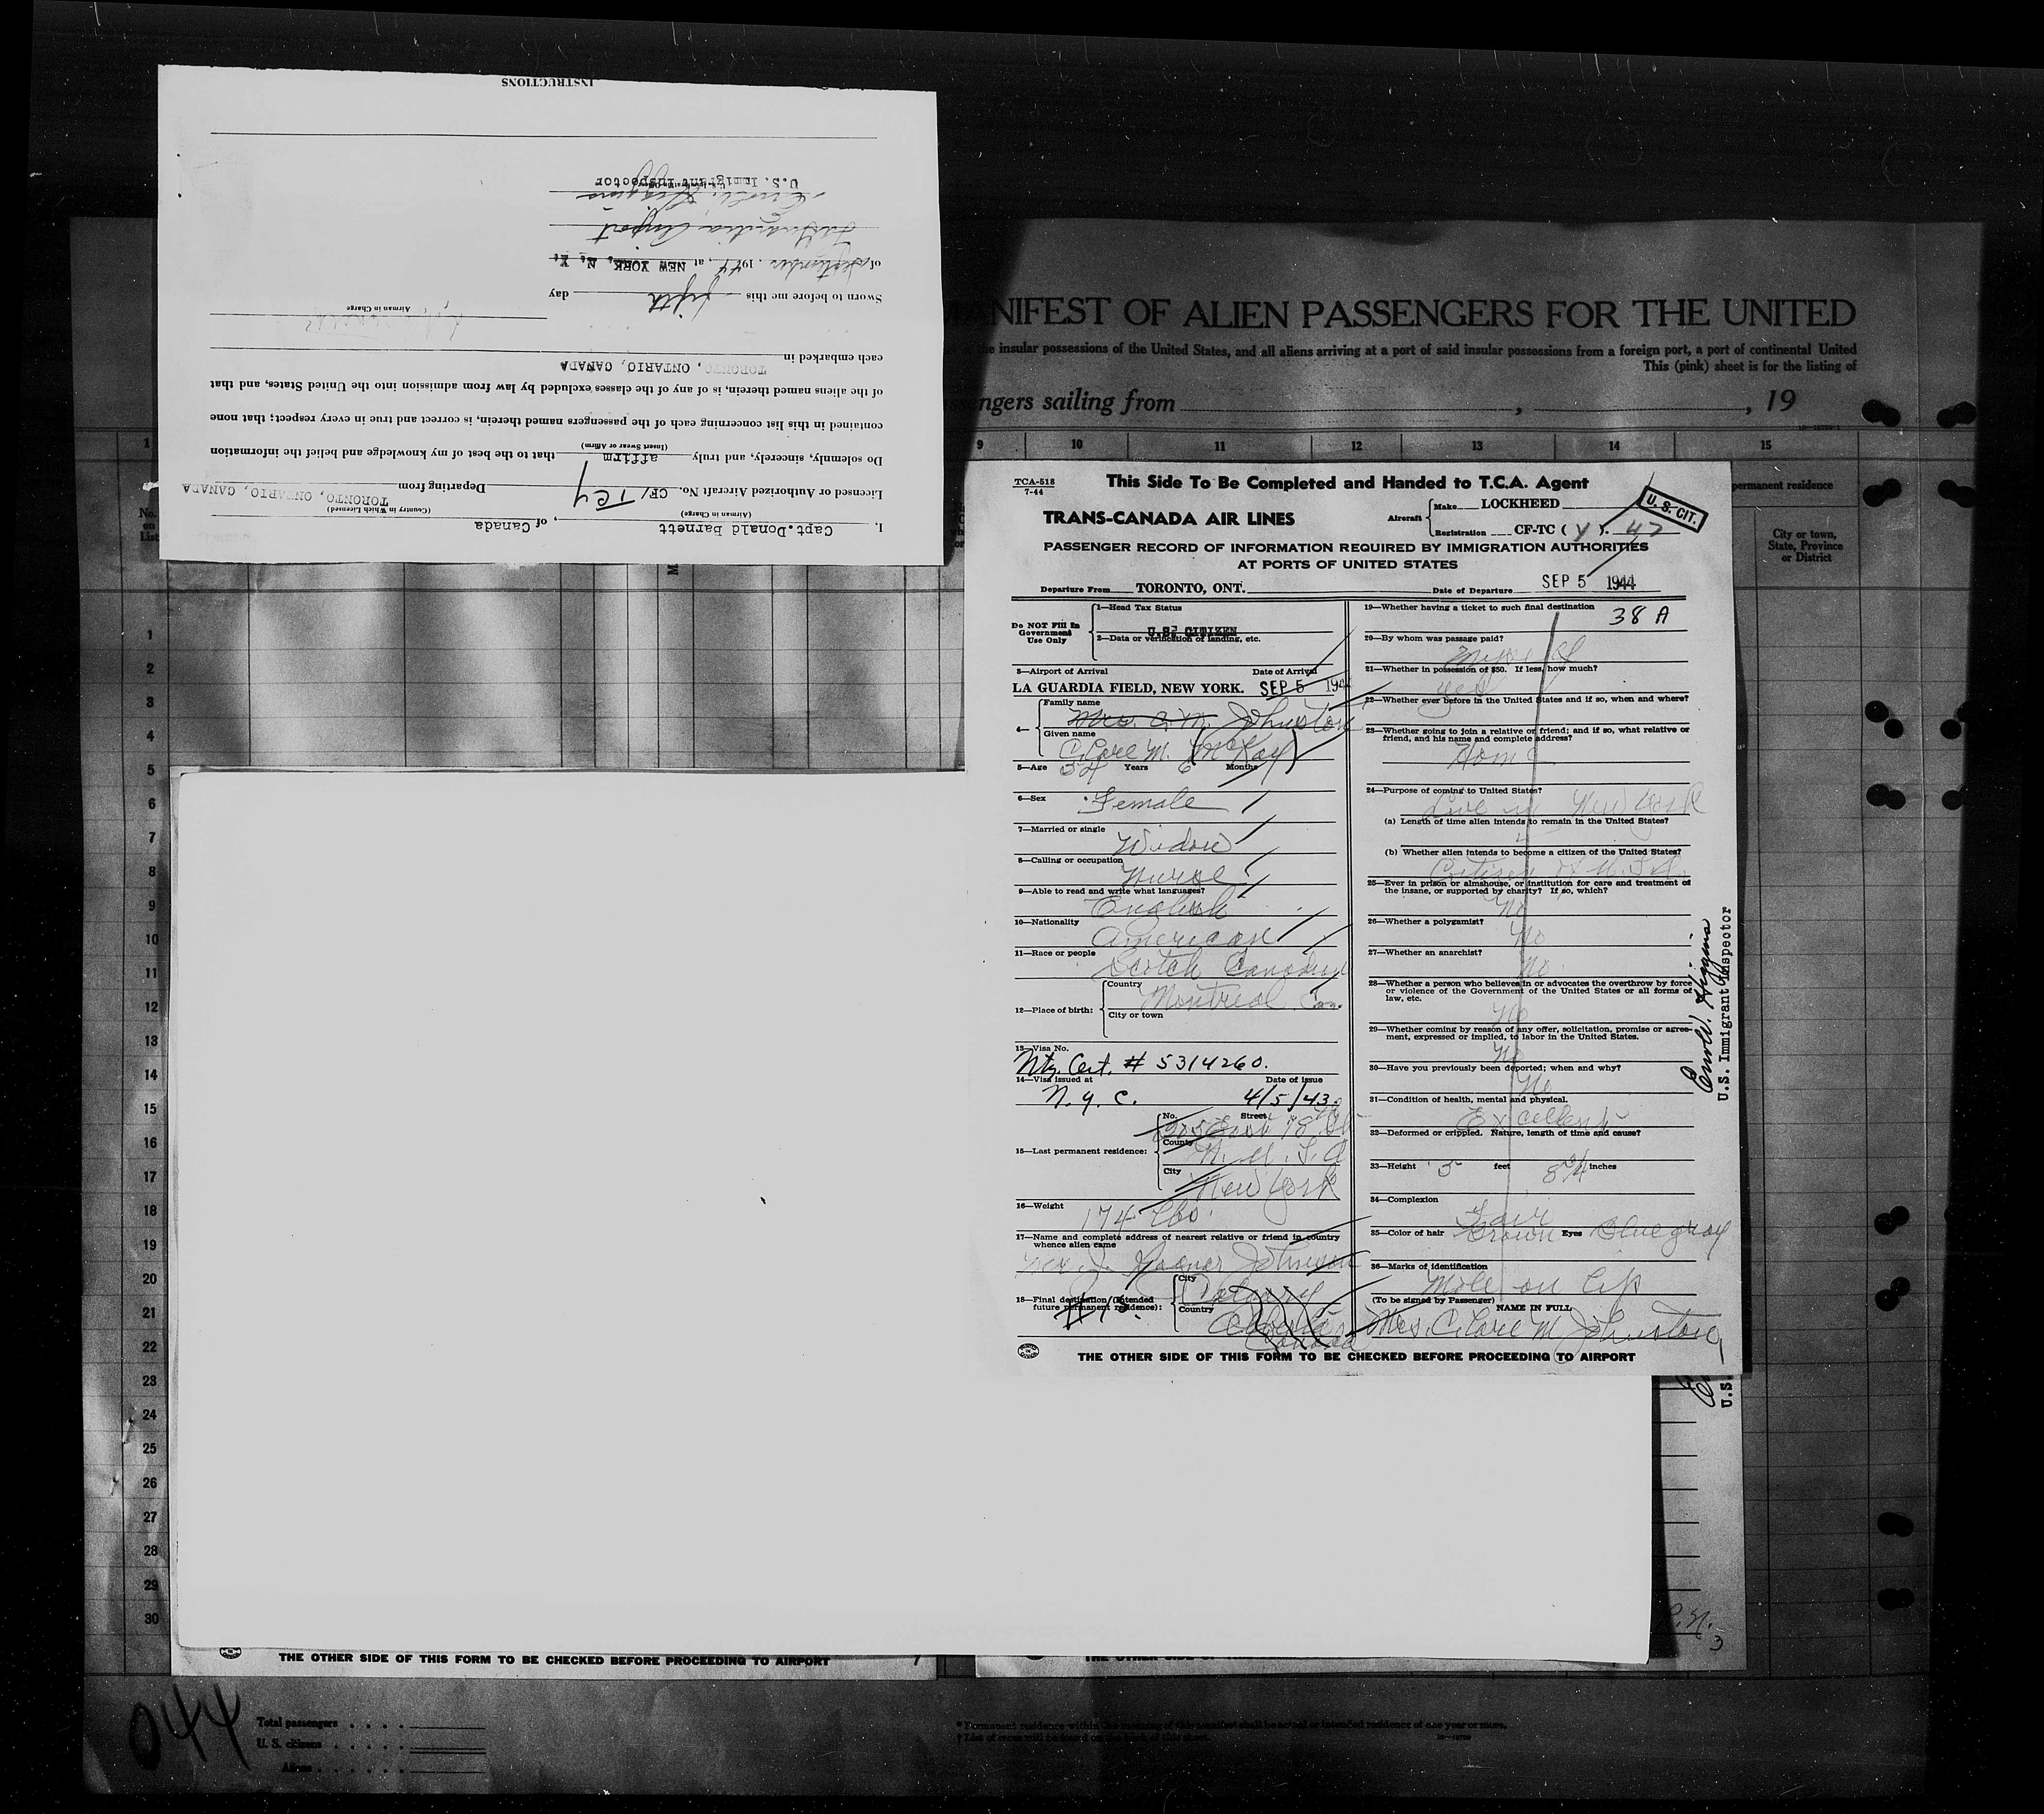 INSTRUCTIONS
I, Capt. Donald Barnett, of Canada
(Airman in Charge) (Country in Which Licensed)
Licensed or Authorized Aircraft No. CF/TCY Departing from TORONTO, ONTARIO, CANADA
Do solemnly, sincerely, and truly affirm that to the best of my knowledge and belief the information
(Insert Swear or Affirm)
contained in this list concerning each of the passengers named therein, is correct and true in every respect; that none
of the aliens named therein, is of any of the classes excluded by law from admission into the United States, and that
each embarked in TORONTO, ONTARIO, CANADA
Airman in Charge
Sworn to before me this fifth day
of September, 1944, at NEW YORK, N. Y.
LaGuardia Airport
U.S. Immigrant Inspector
MANIFEST OF ALIEN PASSENGERS FOR THE UNITED
the insular possessions of the United States, and all aliens arriving at a port of said insular possessions from a foreign port, a port of continental United
This (pink) sheet is for the listing of
sailing from , , 19
1 9 10 11 12 13 14 15
permanent residence
No. on List
City or town, State, Province or District
TCA-518
7-44
This Side To Be Completed and Handed to T.C.A. Agent
TRANS-CANADA AIR LINES
Aircraft Make LOCKHEED
Registration CF-TC ( Y ). 47
U. S. CIT.
PASSENGER RECORD OF INFORMATION REQUIRED BY IMMIGRATION AUTHORITIES
AT PORTS OF UNITED STATES
Departure From TORONTO, ONT. Date of Departure SEP 5 1944
Do NOT Fill In Government Use Only
1—Head Tax Status
U.S. CITIZEN
2—Data or verification of landing, etc.
3—Airport of Arrival Date of Arrival
LA GUARDIA FIELD, NEW YORK. SEP 5 194
4— Family name
Mrs. C. M. Johnston
Given name
Clare M. (McKay)
5—Age 54 Years 6 Months
6—Sex Female
7—Married or single Widow
8—Calling or occupation Nurse
9—Able to read and write what languages? English
10—Nationality American
11—Race or people Scotch Canadian
12—Place of birth: Country Montreal Can.
City or town
13—Visa No.
Ntz. Cert. # 5314260.
14—Visa issued at Date of issue
N.Y.C. 4/5/43
15—Last permanent residence: No. Street
East 78 St
County U.S.A
City New York
16—Weight 174 lbs.
17—Name and complete address of nearest relative or friend in country
whence alien came
Johnson
18—Final destination (Intended
future permanent residence):
City Calgary
Country Alberta
Canada
19—Whether having a ticket to such final destination
38 A
20—By whom was passage paid?
Myself
21—Whether in possession of $50. If less, how much?
Yes
22—Whether ever before in the United States and if so, when and where?
23—Whether going to join a relative or friend; and if so, what relative or
friend, and his name and complete address?
Home
24—Purpose of coming to United States?
Live in New York
(a) Length of time alien intends to remain in the United States?
(b) Whether alien intends to become a citizen of the United States?
Citizen of U.S.A.
25—Ever in prison or almshouse, or institution for care and treatment of
the insane, or supported by charity? If so, which?
No
26—Whether a polygamist?
No
27—Whether an anarchist?
No
28—Whether a person who believes in or advocates the overthrow by force
or violence of the Government of the United States or all forms of
law, etc.
No
29—Whether coming by reason of any offer, solicitation, promise or agree-
ment, expressed or implied, to labor in the United States.
No
30—Have you previously been deported; when and why?
No
31—Condition of health, mental and physical.
Excellent
32—Deformed or crippled. Nature, length of time and cause?
33—Height 5 feet 8 3/4 inches
34—Complexion Fair
35—Color of hair Brown Eyes Blue gray
36—Marks of identification
Mole on lip
(To be signed by Passenger) NAME IN FULL
Mrs. Clare M Johnston
THE OTHER SIDE OF THIS FORM TO BE CHECKED BEFORE PROCEEDING TO AIRPORT
Higgins
U.S. Immigrant Inspector
U.S.
1
2
3
4
5
6
7
8
9
10
11
12
13
14
15
16
17
18
19
20
21
22
23
24
25
26
27
28
29
30
3
THE OTHER SIDE OF THIS FORM TO BE CHECKED BEFORE PROCEEDING TO AIRPORT
THE OTHER SIDE OF
044
Total passengers
U. S. citizens
Aliens
* Permanent residence within the meaning of this manifest shall be actual or intended residence of one year or more.
† List of races will be found on the back of this sheet.